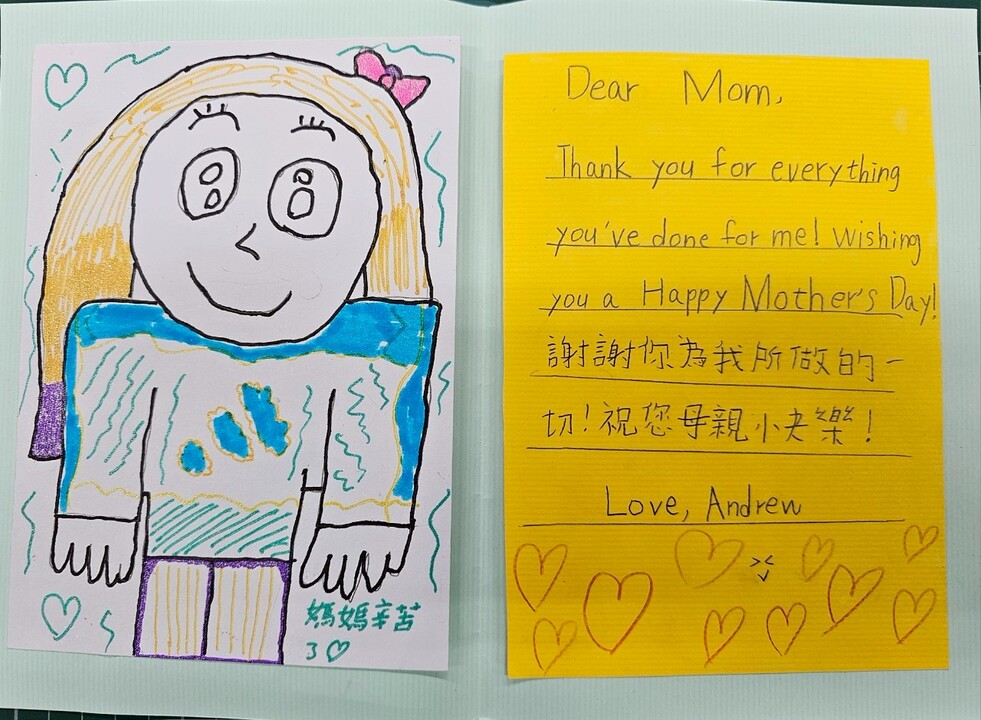 媽媽辛苦
了♡
Dear Mom,
Thank you for everything
you've done for me! Wishing
you a Happy Mother's Day!
謝謝你為我所做的一
切!祝您母親快樂!
Love, Andrew